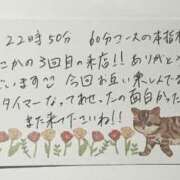 22時50分 60分コースの本指名
かの3回目の来店!! ありがと
ざいます 今回お互い楽しんでる
タイマーなっておせったの面白かった
また来て下さいね!!